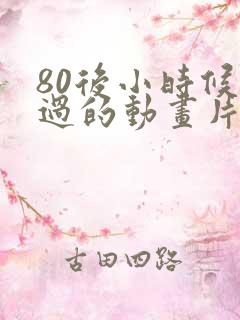 80後小時候
過的動畫片
古田四路